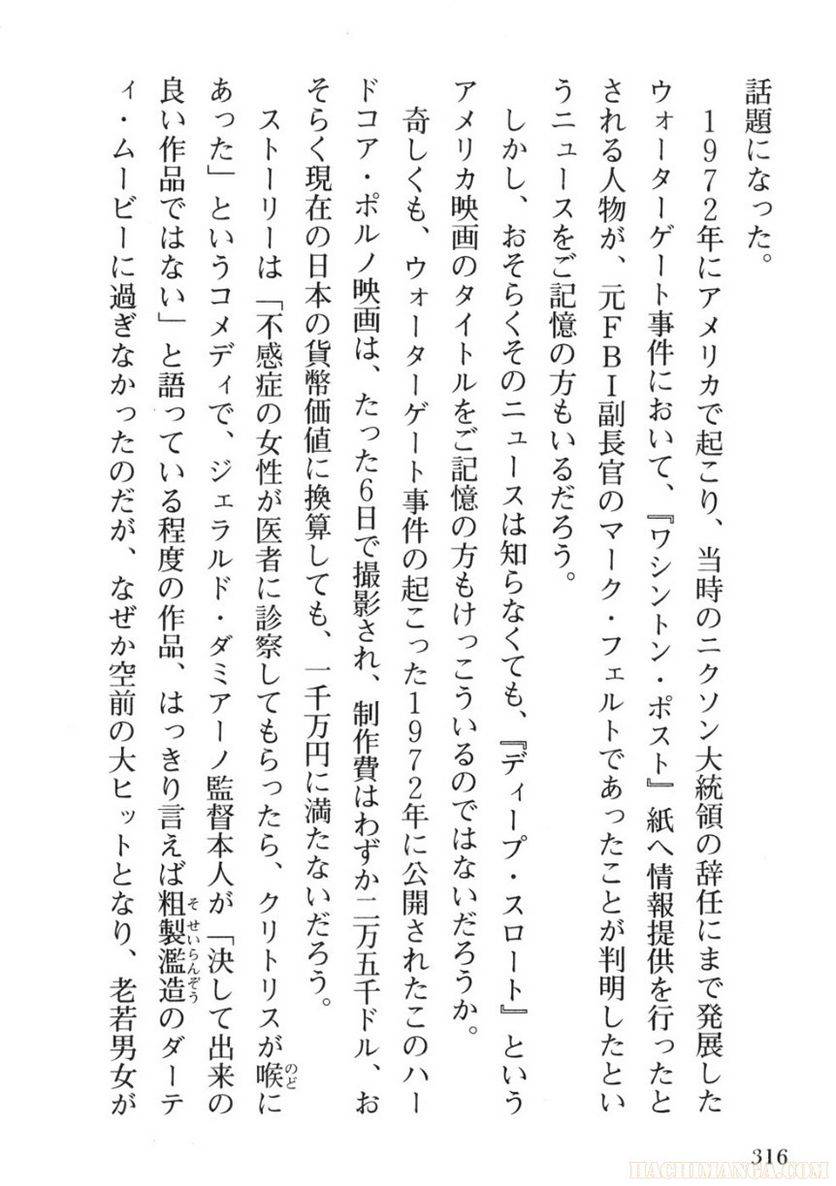 話題になった。
1972年にアメリカで起こり、当時のニクソン大統領の辞任にまで発展した
ウォーターゲート事件において、『ワシントン・ポスト』紙へ情報提供を行ったと
される人物が、元FBI副長官のマーク・フェルトであったことが判明したとい
うニュースをご記憶の方もいるだろう。
しかし、おそらくそのニュースは知らなくても、『ディープ・スロート』という
アメリカ映画のタイトルをご記憶の方もけっこういるのではないだろうか。
奇しくも、ウォーターゲート事件の起こった1972年に公開されたこのハー
ドコア・ポルノ映画は、たった6日で撮影され、制作費はわずか二万五千ドル、お
そらく現在の日本の貨幣価値に換算しても、一千万円に満たないだろう。
ストーリーは「不感症の女性が医者に診察してもらったら、クリトリスが喉に
のど
あった」というコメディで、ジェラルド・ダミアーノ監督本人が「決して出来の
良い作品ではない」と語っている程度の作品、はっきり言えば粗製濫造のダーテ
そせいらんぞう
ィ・ムービーに過ぎなかったのだが、なぜか空前の大ヒットとなり、老若男女が
316
HACHIMANGA.COM